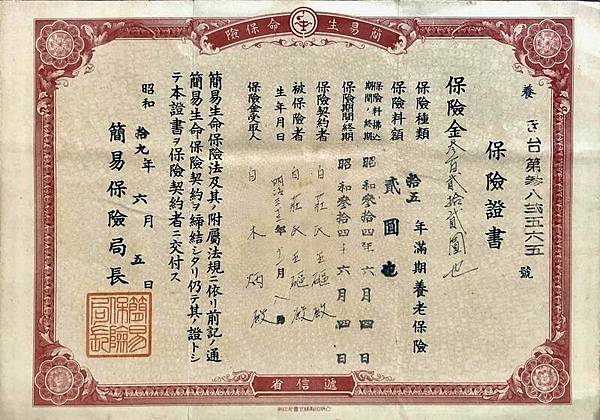 簡易生命保險
養 き台第參八貳五六五號
保險證書
保險金參百貳拾貳圓也
保險種類 拾五年滿期養老保險
保險料額 貳圓也
保險料拂込期間ノ終期 昭和參拾四年六月四日
保險期間終期 昭和參拾四年六月四日
保險契約者 白莊氏玉磘殿
被保險者 白莊氏玉磘殿
生年月日 明治三十三年
保險金受取人 白木炳殿
簡易生命保險法及其ノ附屬法規ニ依リ前記ノ通
簡易生命保險契約ヲ締結シタリ仍テ其ノ證トシ
テ本證書ヲ保險契約者ニ交付ス
昭和拾九年六月五日
簡易保險局長
簡易保險局長
遞信省